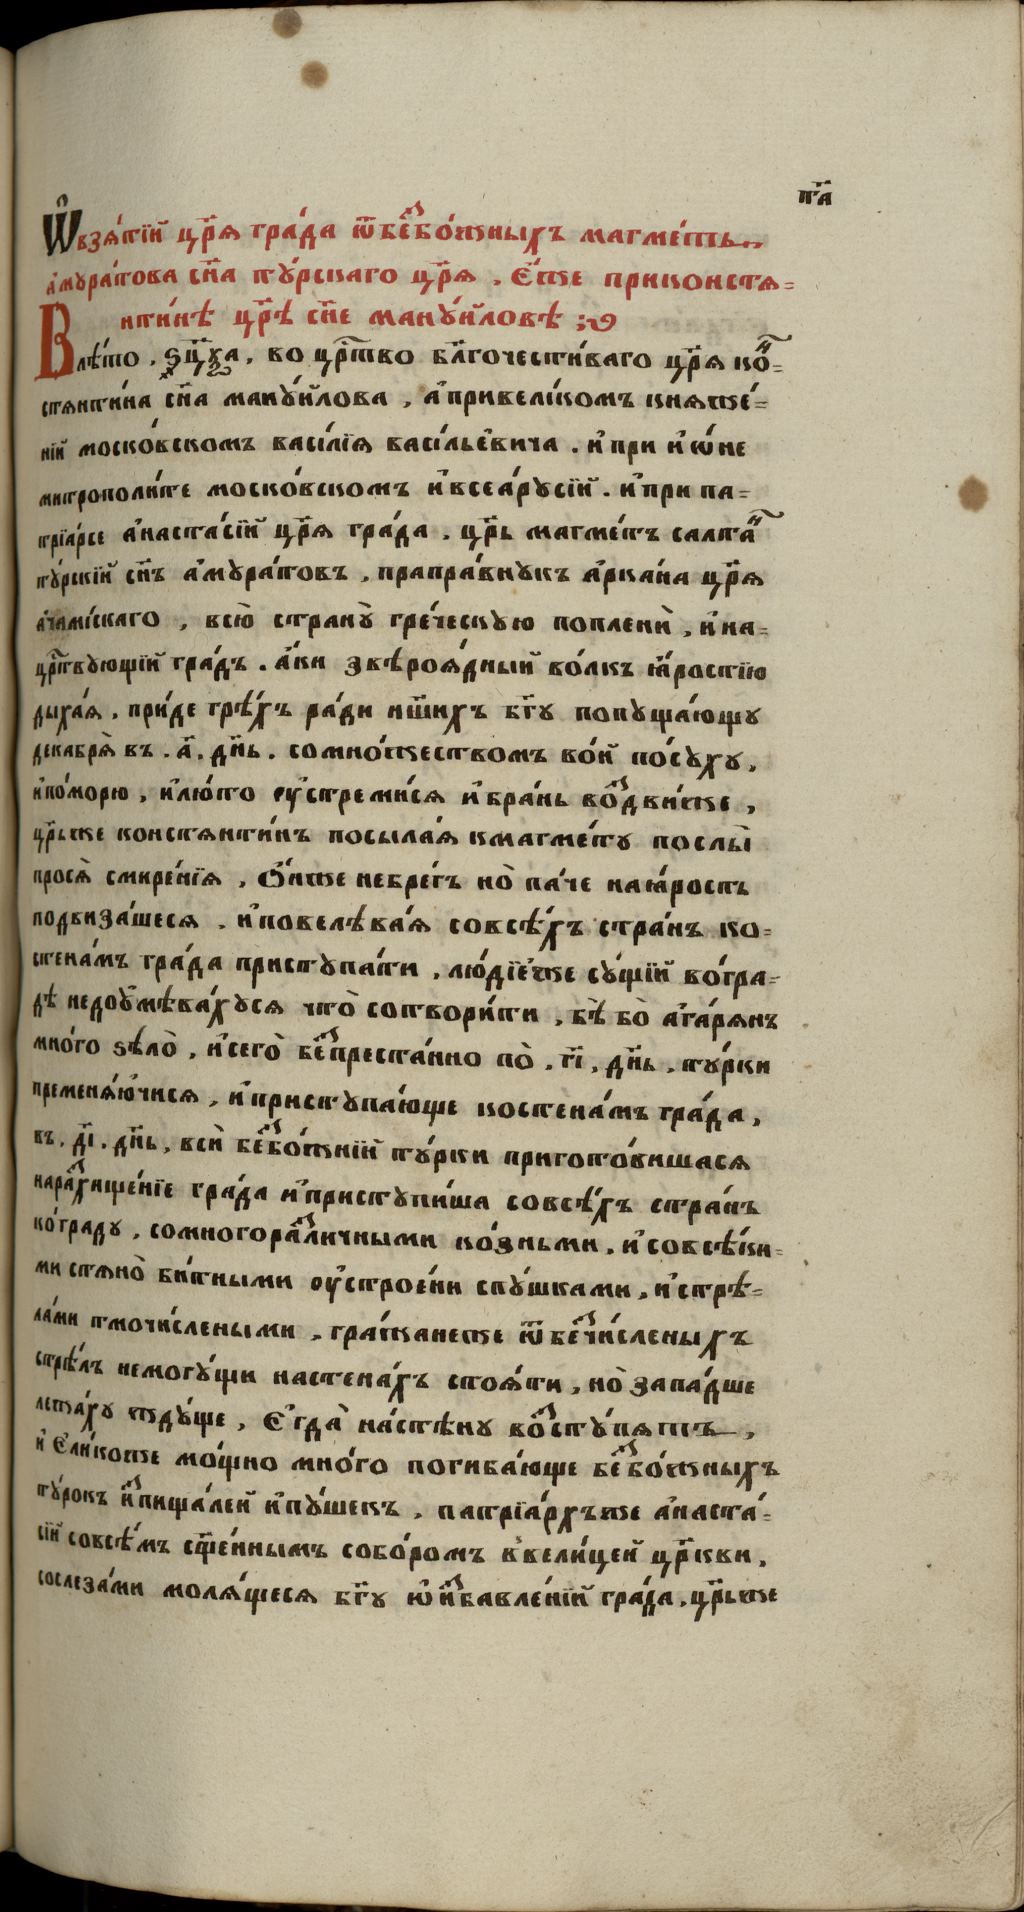 п҃а
Ѡ҆ взѧ́тїй цр҃ѧ гра́да ѿ бе́з̾бо́жныхъ магме́ть
а҆мура́това сн҃а ту́рскаго цр҃ѧ . є҆́же приконстѧ=
нти́нѣ цр҃ѣ сн҃е мануи́ловѣ ;
В лѣ́то . ѕ҃цѯа , во цр҃тво бл҃гочести́ваго цр҃ѧ ко́н=
стѧнти́на сн҃а мануи́лова , а҆ привели́комъ кнѧже́=
нїй моско́вскомъ васи́лїѧ васи́льевича . и҆ при и҆ѡ́не
митрополи́те моско́вскомъ и҆ всеа́русїй . и҆ при па=
трїа́рсе а҆наста́сїй цр҃ѧ гра́да . цр҃ь магме́тъ салта́н
ту́рскїй сн҃ъ а҆мура́товъ , прапра́внукъ а҆рка́на цр҃ѧ
а҆чами́скаго , всю̀ страну̀ гре́ческую попленѝ , и҆ на=
цр҃твующїй гра́дъ . а҆́ки звѣроѧ́дный во́лкъ ꙗ҆́ростїю
дыха́ѧ , прїи́де грѣ́хъ ра́ди нш҃ихъ бг҃у попуща́ющу
декабрѧ̀ въ . д҃ . дн҃ь . сомно́жествомъ во́й посу́ху ,
и҆ помо́рю , и҆ лю́то ѹ҆стреми́сѧ и҆ бра́нь воз̾дви́же ,
цр҃ьже констѧнти́нъ посыла́ѧ кмагме́ту послы̀
просѧ̀ смире́нїѧ , Ѻ҆́нже небрегъ но̀ па́че на ꙗ҆́рость
подвиза́шесѧ . и҆ повелѣва́ѧ совсѣ́хъ стра́нъ ко=
стена́мъ гра́да приступа́ти , лю́дїеже су́щїй во́гра=
дѣ недоумѣва́хусѧ что̀ сотвори́ти , бѣ̀ бо̀ а҆га́рѧнъ
мно́го ѕѣлѡ̀ , и҆ сего̀ без̾преста́нно по̀ . г҃і . дн҃ь . ту́рки
применѧ́ючисѧ , и҆ приступа́юще костена́мъ гра́да ,
въ . д҃і . дн҃ь , всѝ без̾бо́жнїй ту́рки пригото́вишасѧ
нараз̾хище́нїе гра́да и҆ приступи́ша совсѣ́хъ стра́нъ
ко́граду , сомногораз̾личными ко́зньми , и҆ совсѣ́ки=
ми стѧнобѝтными ѹ҆строе́ни спу́шками , и҆ стрѣ=
ла́ми тмочи́слеными , гра́жанеже ѿ без̾чи́сленыхъ
стрѣ́лъ немогу́щи настена́хъ стоѧ́ти , но̀ запа́дше
лежа́ху ждуще , є҆гда̀ на́стѣну воз̾сту́пѧтъ ,
и҆ є҆ли́коже мо́щно мно́го погиба́юще без̾бо́жныхъ
ту́рокъ и҆з̾пища́лей и҆ пу́шекъ , патрїа́рхъже а҆наста́=
сїй совсѣ́мъ сщ҃е́ннымъ собо́ромъ в̾вели́цей цр҃кви ,
сослеза́ми молѧ́щесѧ бг҃у ѡ҆ и҆з̾бавле́нїй гра́да , цр҃ьже